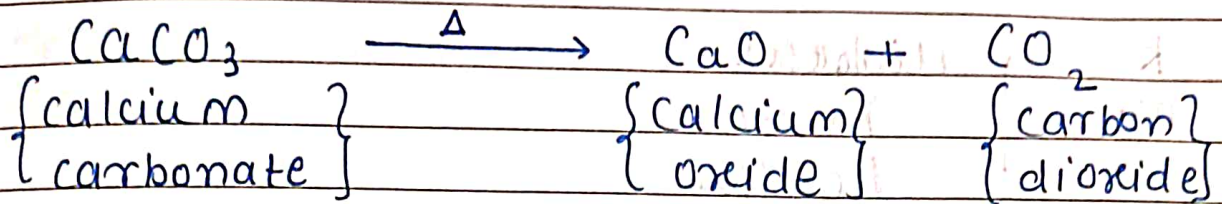 CaCO₃ —Δ→ CaO + CO₂
{calcium carbonate} {calcium oxide} {carbon dioxide}